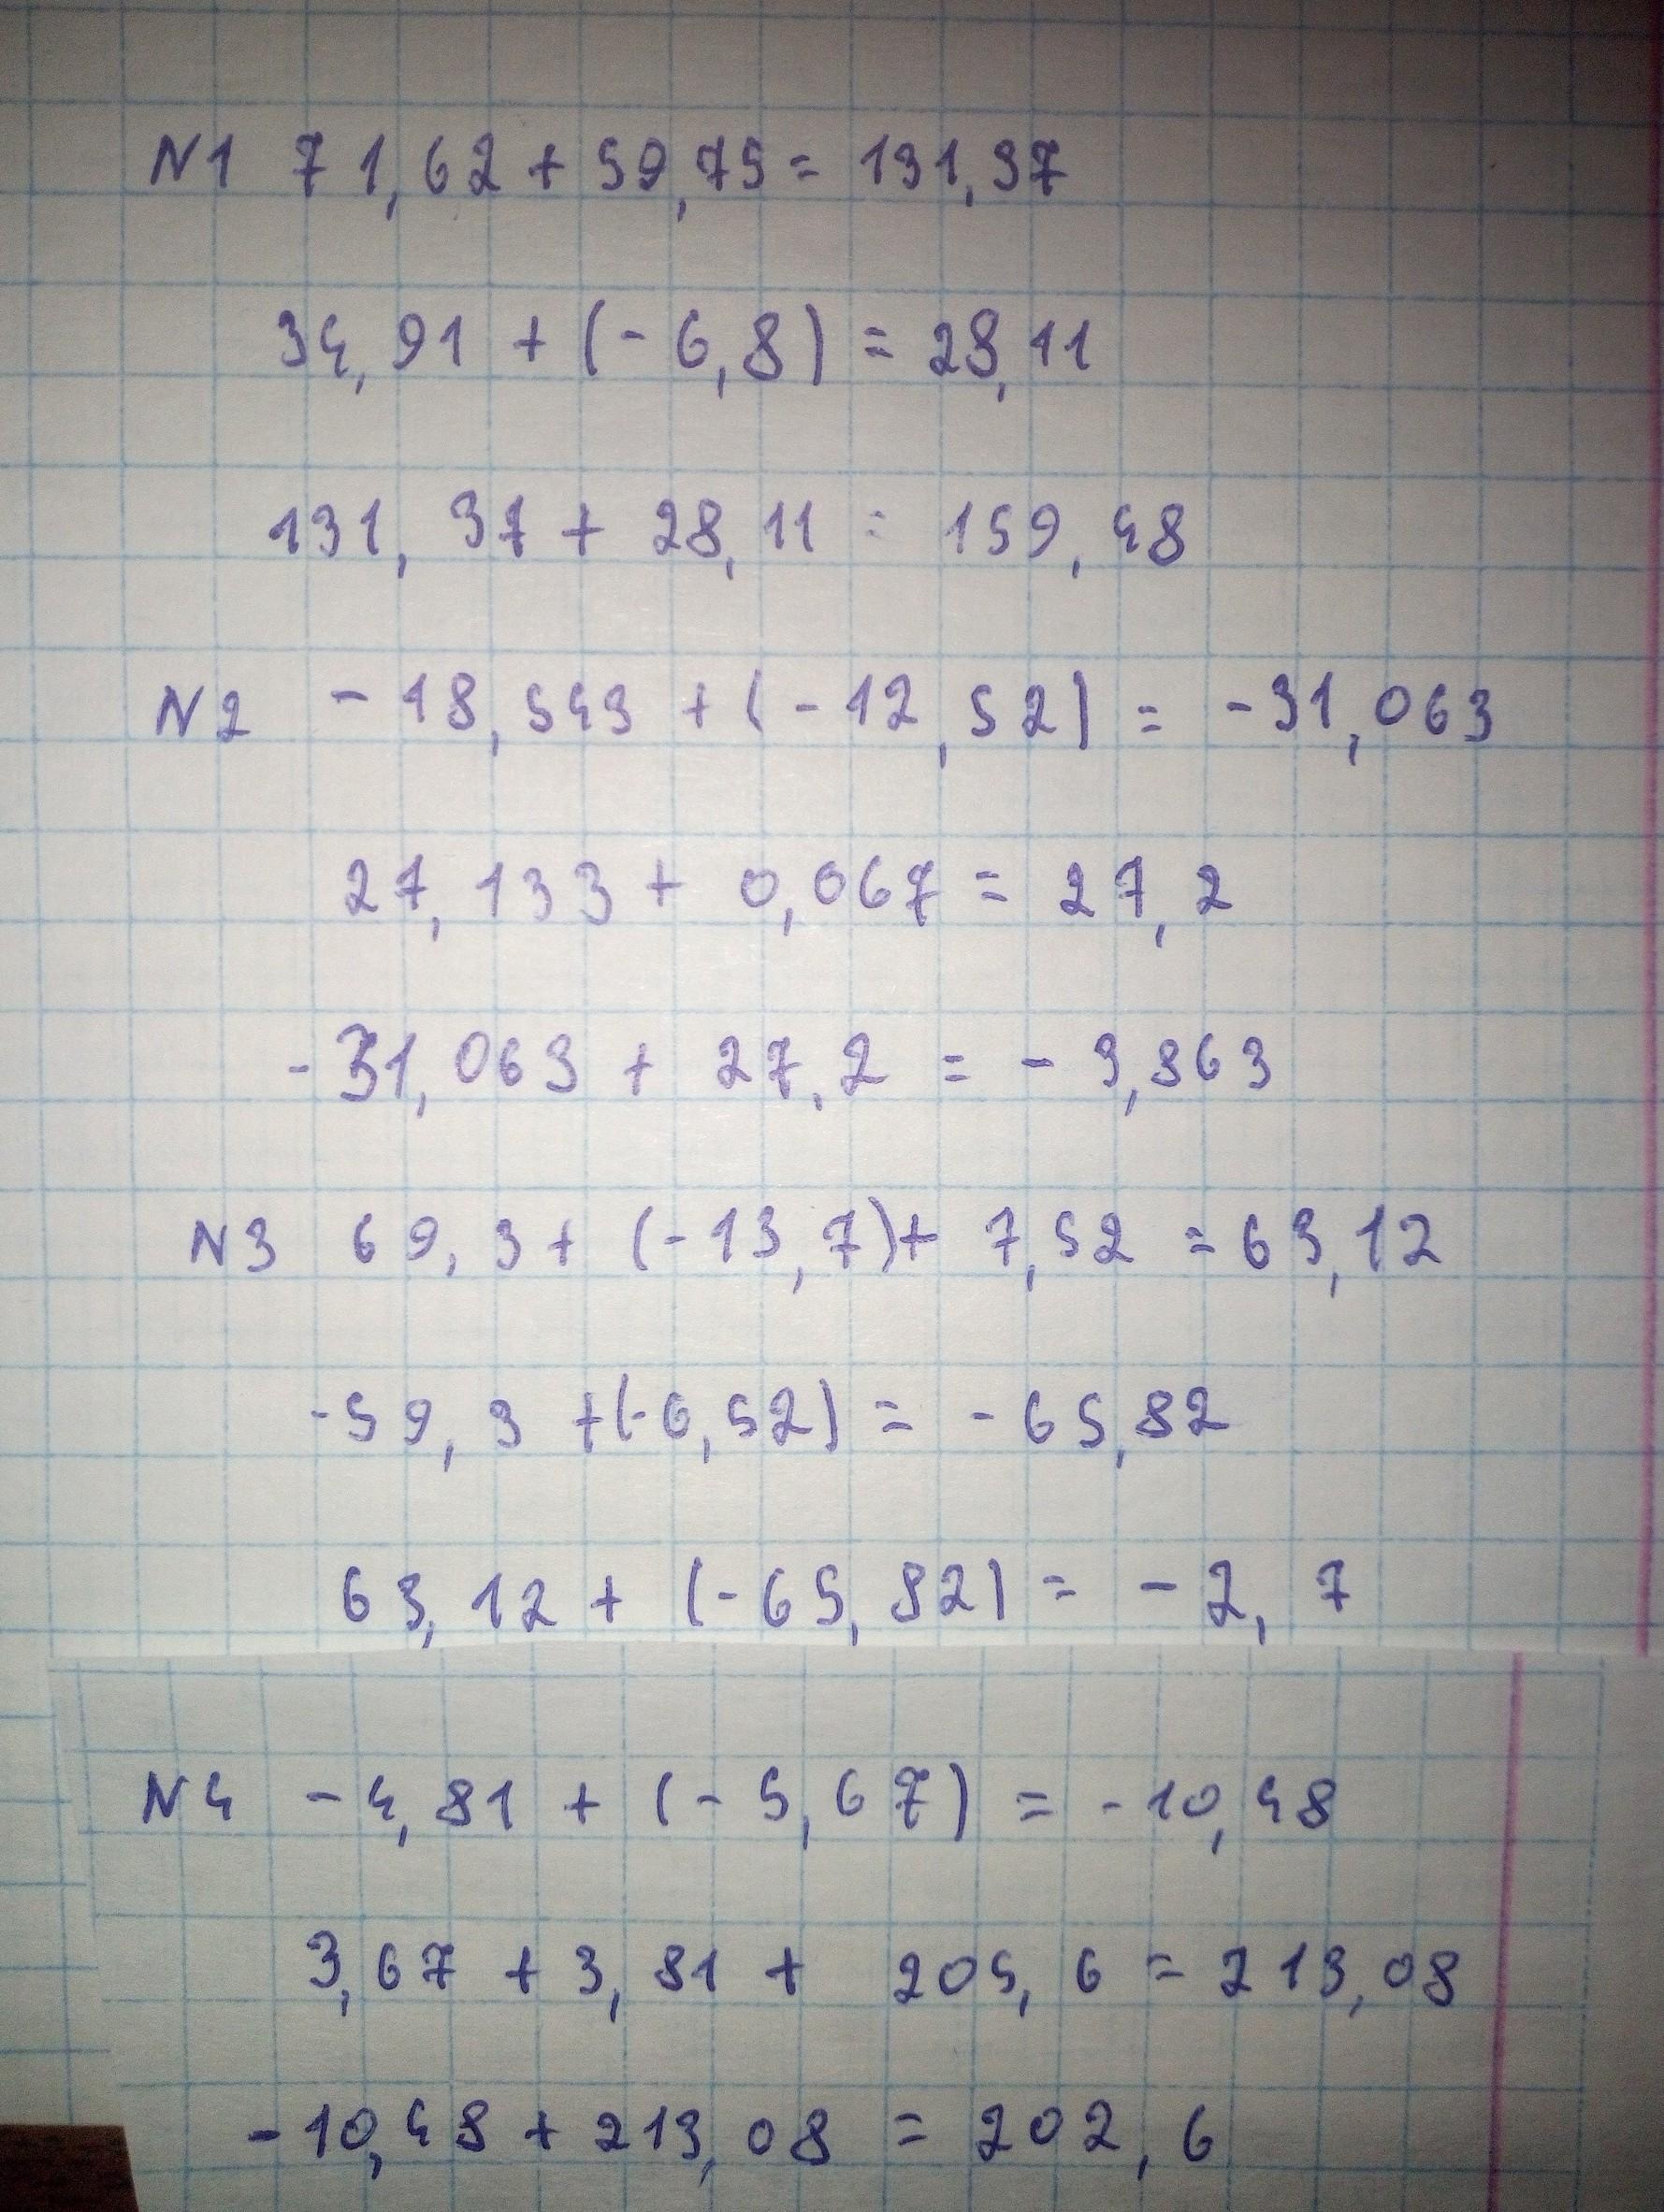 N1 71,62 + 59,75 = 131,37
34,91 + (-6,8) = 28,11
131,37 + 28,11 = 159,48
N2 -18,543 + (-12,52) = -31,063
27,133 + 0,067 = 27,2
-31,063 + 27,2 = -3,863
N3 69,3 + (-13,7) + 7,52 = 63,12
-59,3 + (-6,52) = -65,82
63,12 + (-65,82) = -2,7
N4 -4,81 + (-5,67) = -10,48
3,67 + 3,81 + 205,6 = 213,08
-10,48 + 213,08 = 202,6